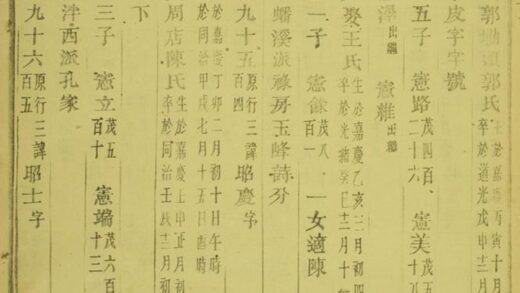 郭氏 於嘉慶丙寅十月 卒於道光戊申十二
皮字字號
五子 憲路 茂四百二十六 憲美 茂五
出繼 憲 出繼
娶王氏 生於嘉慶乙亥二月初四 卒於光緒癸巳十二月十
一子 憲餘 茂八百一 一女適陳
蟠溪派祿房玉峰詩分
九十五百四 原行三諱昭慶字
於嘉慶丁卯二月初十日午時 於同治甲戌七月十五日酉時
周店陳氏 生於嘉慶壬申正月初 卒於同治壬戌十二月初
下
三子 憲立 茂五百十 憲端 茂六百十三
泮西派孔家
九十六百五 原行三諱昭士字